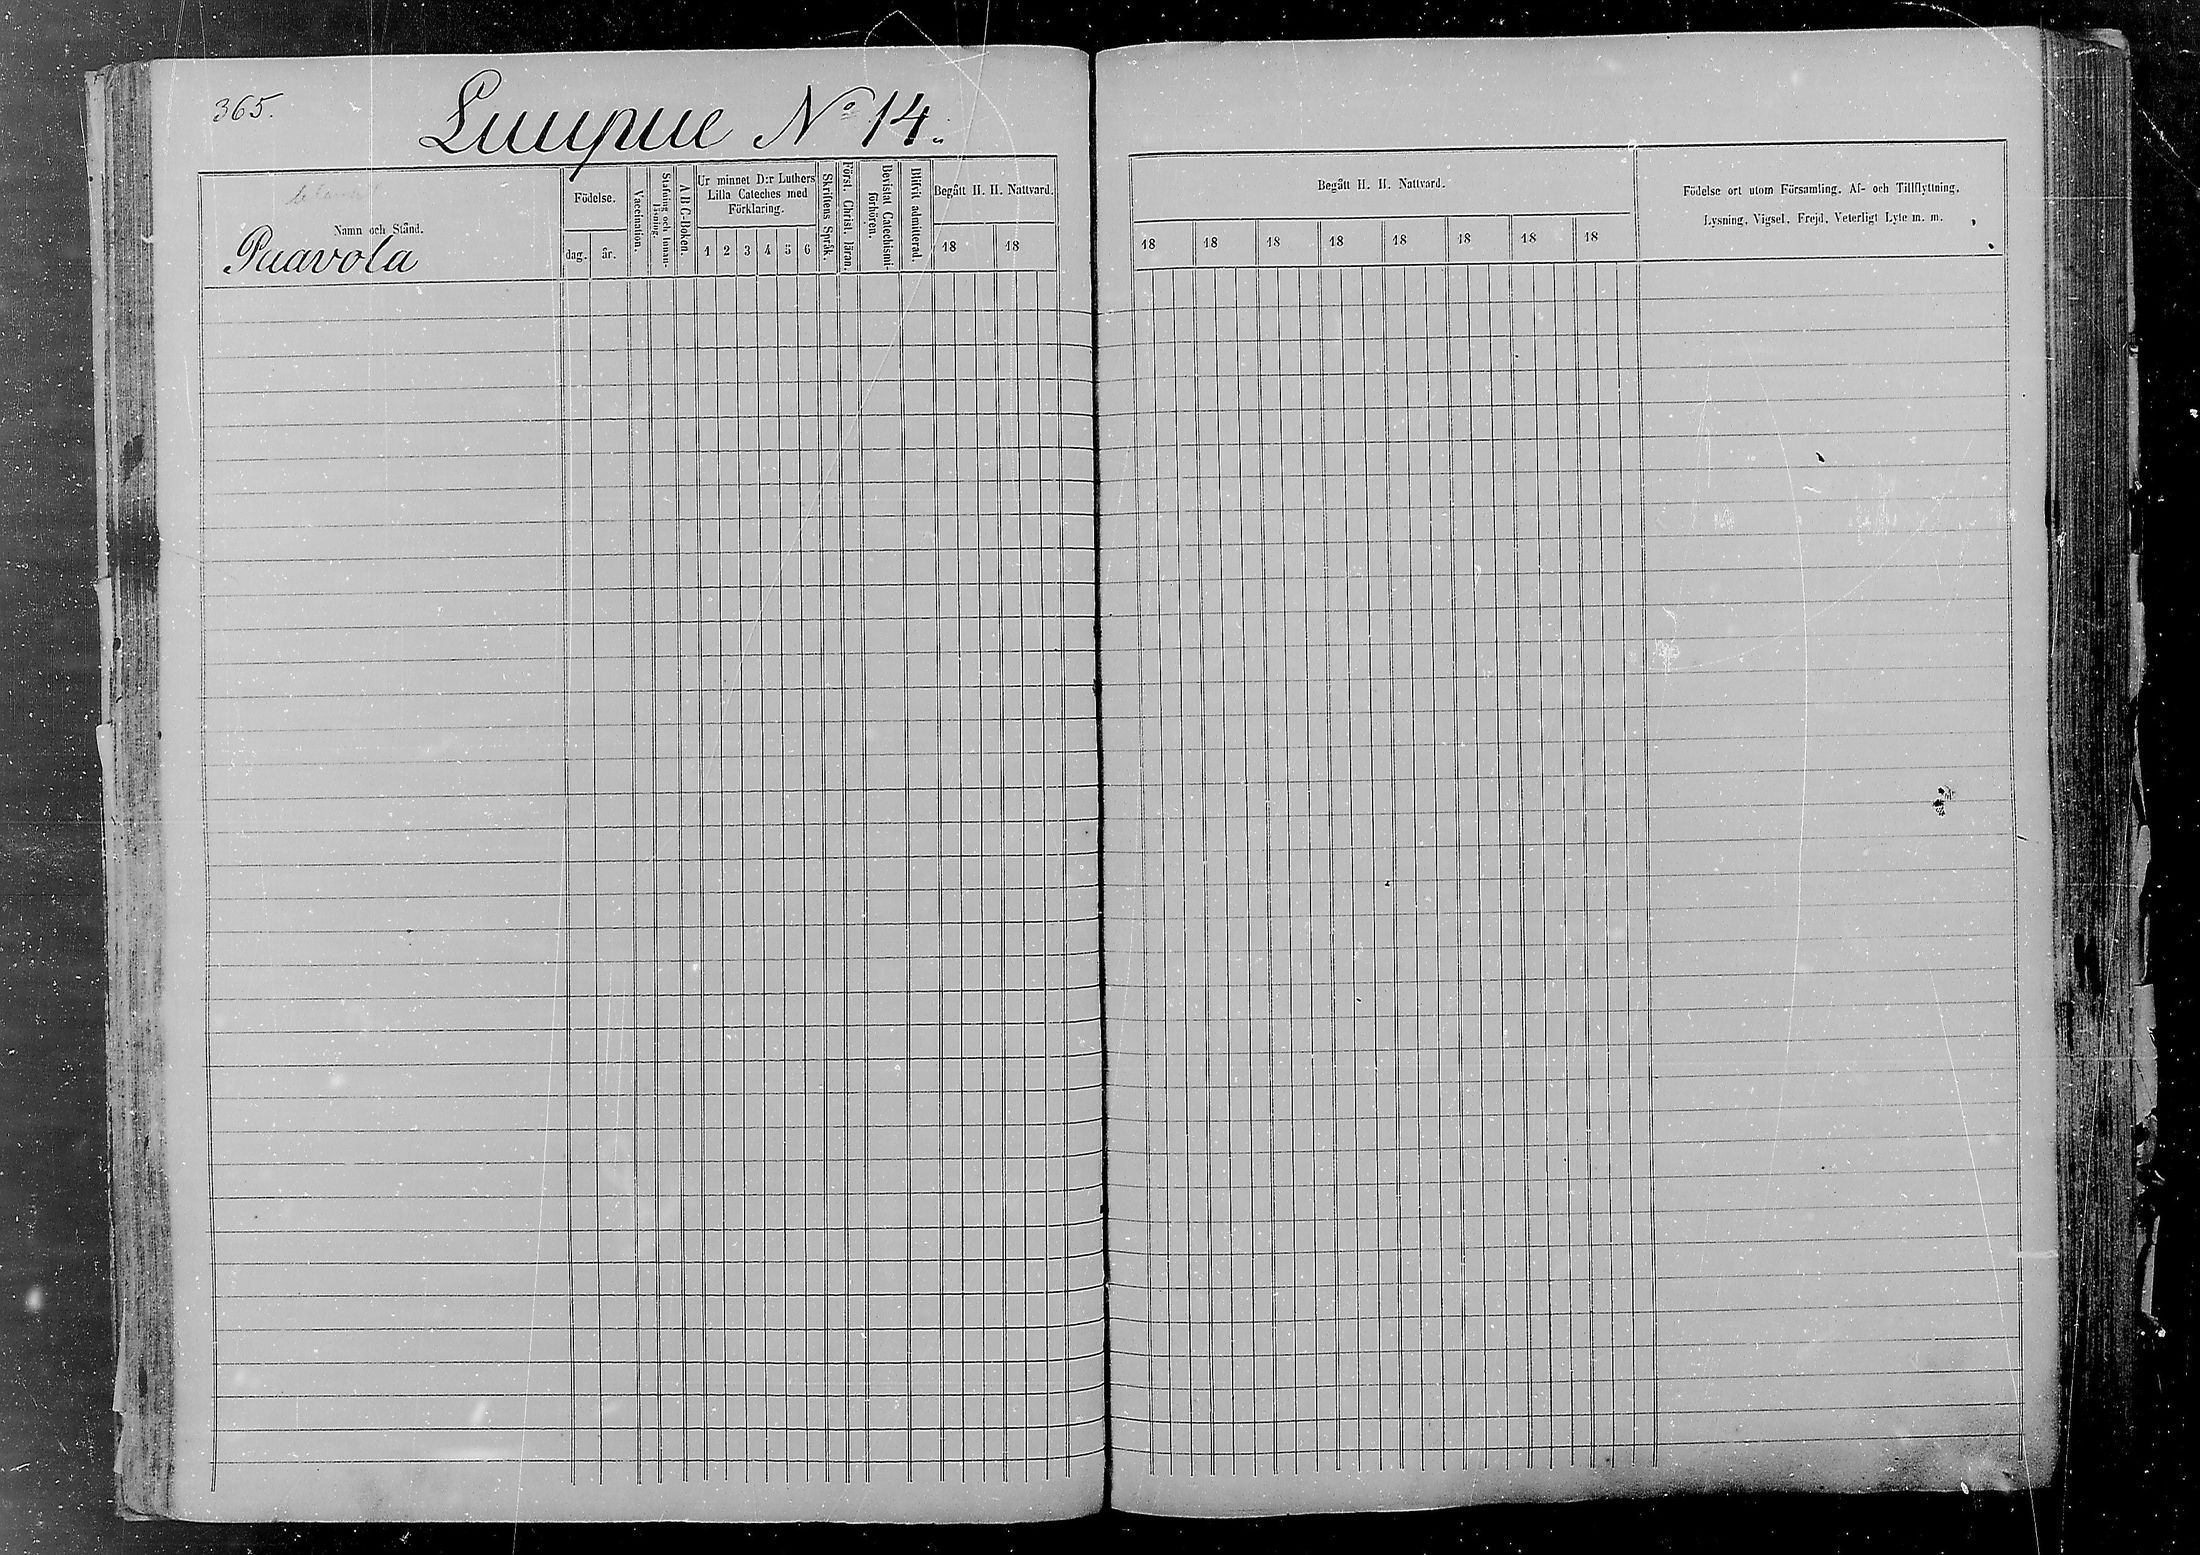 365.
Luupue No 14.
Namn och Stånd.
Paavola
Födelse.
dag. år.
Vaccination.
Stafning och Innan-
läsning.
A B C-Boken.
Ur minnet D:r Luthers
Lilla Cateches med
Förklaring.
1 2 3 4 5 6
Skriftens Språk.
Först. Christ. läran.
Bevistat Catechismi-
förhören.
Blifvit admitterad.
Begått H. H. Nattvard.
18 18
Begått H. H. Nattvard.
18 18 18 18 18 18 18 18
Födelse ort utom Församling, Af- och Tillflyttning,
Lysning, Vigsel, Frejd, Veterligt Lyte m. m.